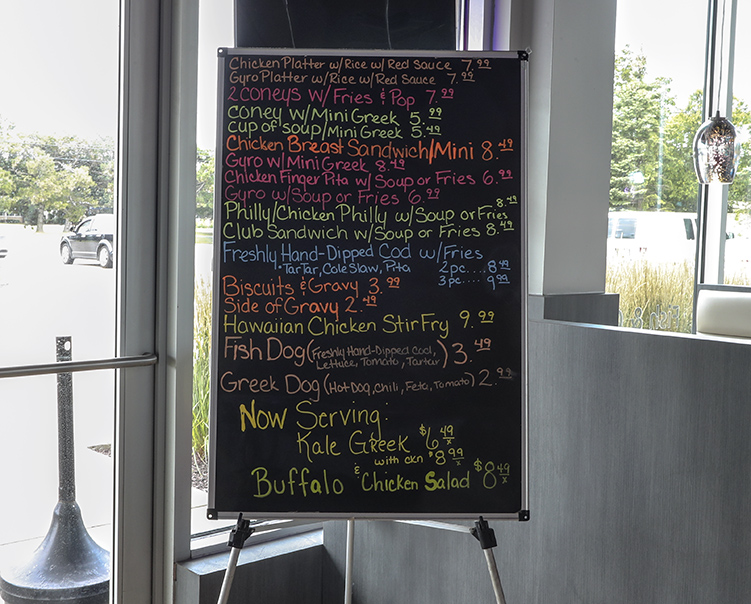 Chicken Platter w/Rice w/Red Sauce 7.99
Gyro Platter w/Rice w/Red Sauce 7.99
2 coneys w/ Fries & Pop 7.99
coney w/Mini Greek 5.99
cup of soup/Mini Greek 5.49
Chicken Breast Sandwich/Mini 8.49
Gyro w/Mini Greek 8.49
Chicken Finger Pita w/ Soup or Fries 6.99
Gyro w/Soup or Fries 6.99
Philly/Chicken Philly w/Soup or Fries 8.49
Club Sandwich w/Soup or Fries 8.49
Freshly Hand-Dipped Cod w/Fries
·TarTar, Cole Slaw, Pita 2pc....8.49
3pc....9.49
Biscuits & Gravy 3.99
Side of Gravy 2.49
Hawaiian Chicken Stir Fry 9.99
Fish Dog (Freshly Hand-Dipped Cod, Lettuce, Tomato, Tartar) 3.49
Greek Dog (Hot Dog, Chili, Feta, Tomato) 2.99
Now Serving:
Kale Greek $6.49
with ckn $8.99
Buffalo & Chicken Salad $8.49